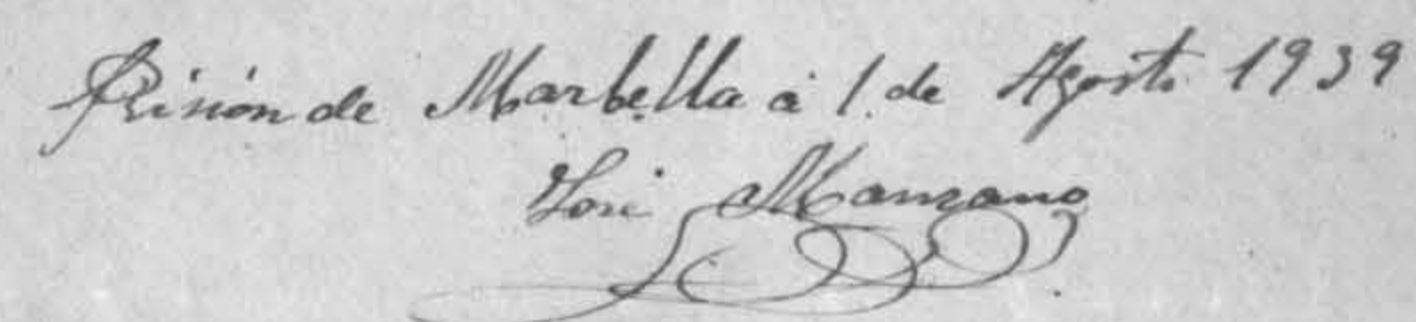 Prisión de Marbella á 1. de Agosto 1939
José Manzano